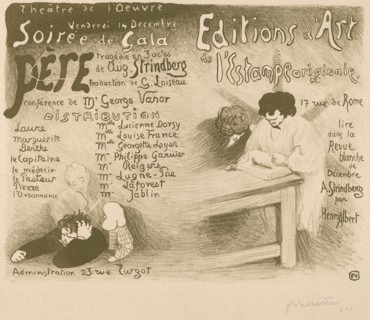 Théâtre de l'Oeuvre
Vendredi 14 Décembre
Soirée de Gala
PÈRE
Tragédie en 3 actes
de Aug Strindberg
traduction de G. Loiseau
conférence de Mr George Vanor
DISTRIBUTION
Laure Mlle Lucienne Dorsy
Marguerite Mlle Louise France
Berthe Mlle Georgette Loyer
le Capitaine Mr Philippe Garnier
le médecin Mr Reigers
le Pasteur Mr Lugné-Poe
Pierre Mr Laforest
l'Ordonnance Mr Jablin
Administration 23 rue Turgot
Editions d'Art
de l'Estampe originale
17 rue de Rome
lire
dans la
Revue
blanche
de
Décembre
A. Strindberg
par
Henri Albert